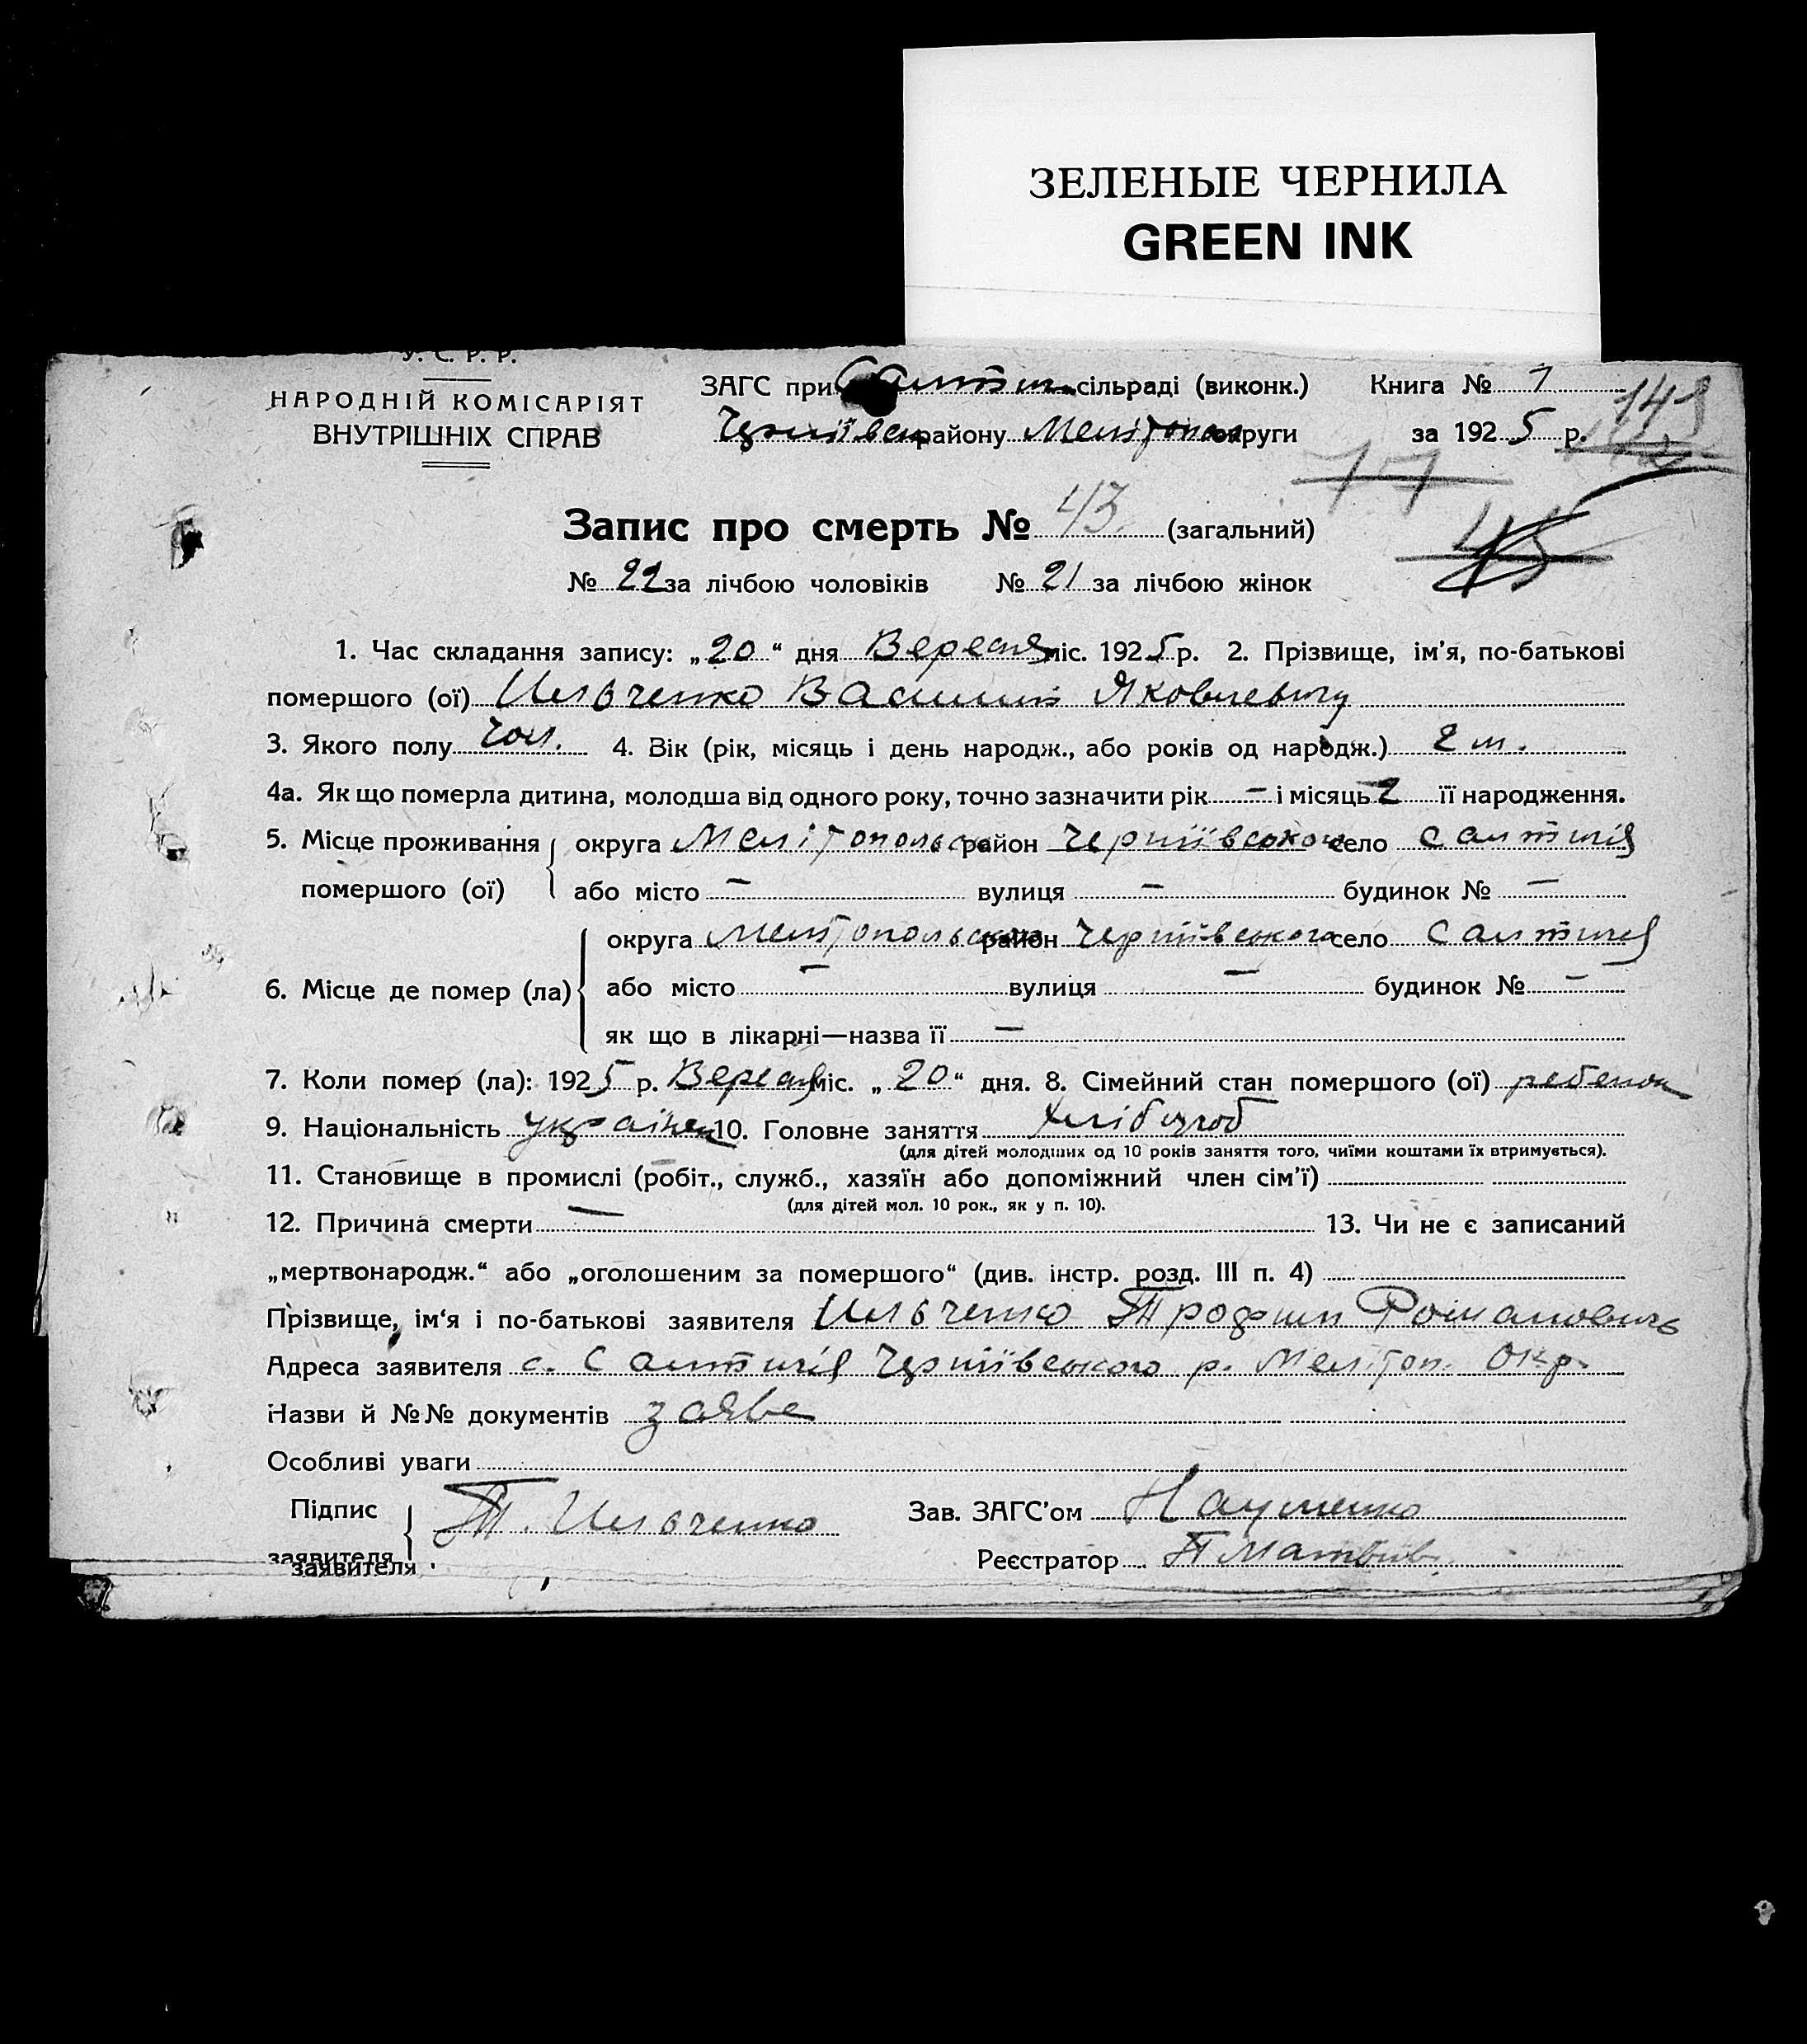 ЗЕЛЕНЫЕ ЧЕРНИЛА
GREEN INK
У. С. Р. Р.
НАРОДНІЙ КОМІСАРІЯТ
ВНУТРІШНІХ СПРАВ
ЗАГС при сільраді (виконк.) Книга № 1
району Мелітопол округи за 1925 р.
149
77
Запис про смерть № 43 (загальний)
45
№ 22 за лічбою чоловіків № 21 за лічбою жінок
1. Час складання запису: „20“ дня Вересня міс. 1925 р. 2. Прізвище, ім’я, по-батькові
помершого (ої) Ильченко Василий Яковлевич
3. Якого полу чол. 4. Вік (рік, місяць і день народж., або років од народж.) 2 м.
4а. Як що померла дитина, молодша від одного року, точно зазначити рік – і місяць 2 її народження.
5. Місце проживання округа Мелітопольск район Черніївського село Салтичія
помершого (ої) або місто – вулиця – будинок № –
округа Мелітопольської район Черніївського село Салтичія
6. Місце де помер (ла) або місто – вулиця – будинок № –
як що в лікарні—назва її –
7. Коли помер (ла): 1925 р. Вересня міс. „20“ дня. 8. Сімейний стан помершого (ої) ребенок
9. Національність українец 10. Головне заняття хлібороб
(для дітей молодших од 10 років заняття того, чиїми коштами їх втримується).
11. Становище в промислі (робіт., служб., хазяїн або допоміжний член сім’ї)
(для дітей мол. 10 рок., як у п. 10).
12. Причина смерти – 13. Чи не є записаний
„мертвонародж.“ або „оголошеним за помершого“ (див. інстр. розд. III п. 4)
Прізвище, ім‘я і по-батькові заявителя Ильченко Трофим Романовичь
Адреса заявителя с. Салтичія Черніївського р. Мелітоп. Окр.
Назви й №№ документів заяве
Особливі уваги
Підпис Т. Ильченко Зав. ЗАГС’ом Науменко
заявителя
заявителя Реєстратор